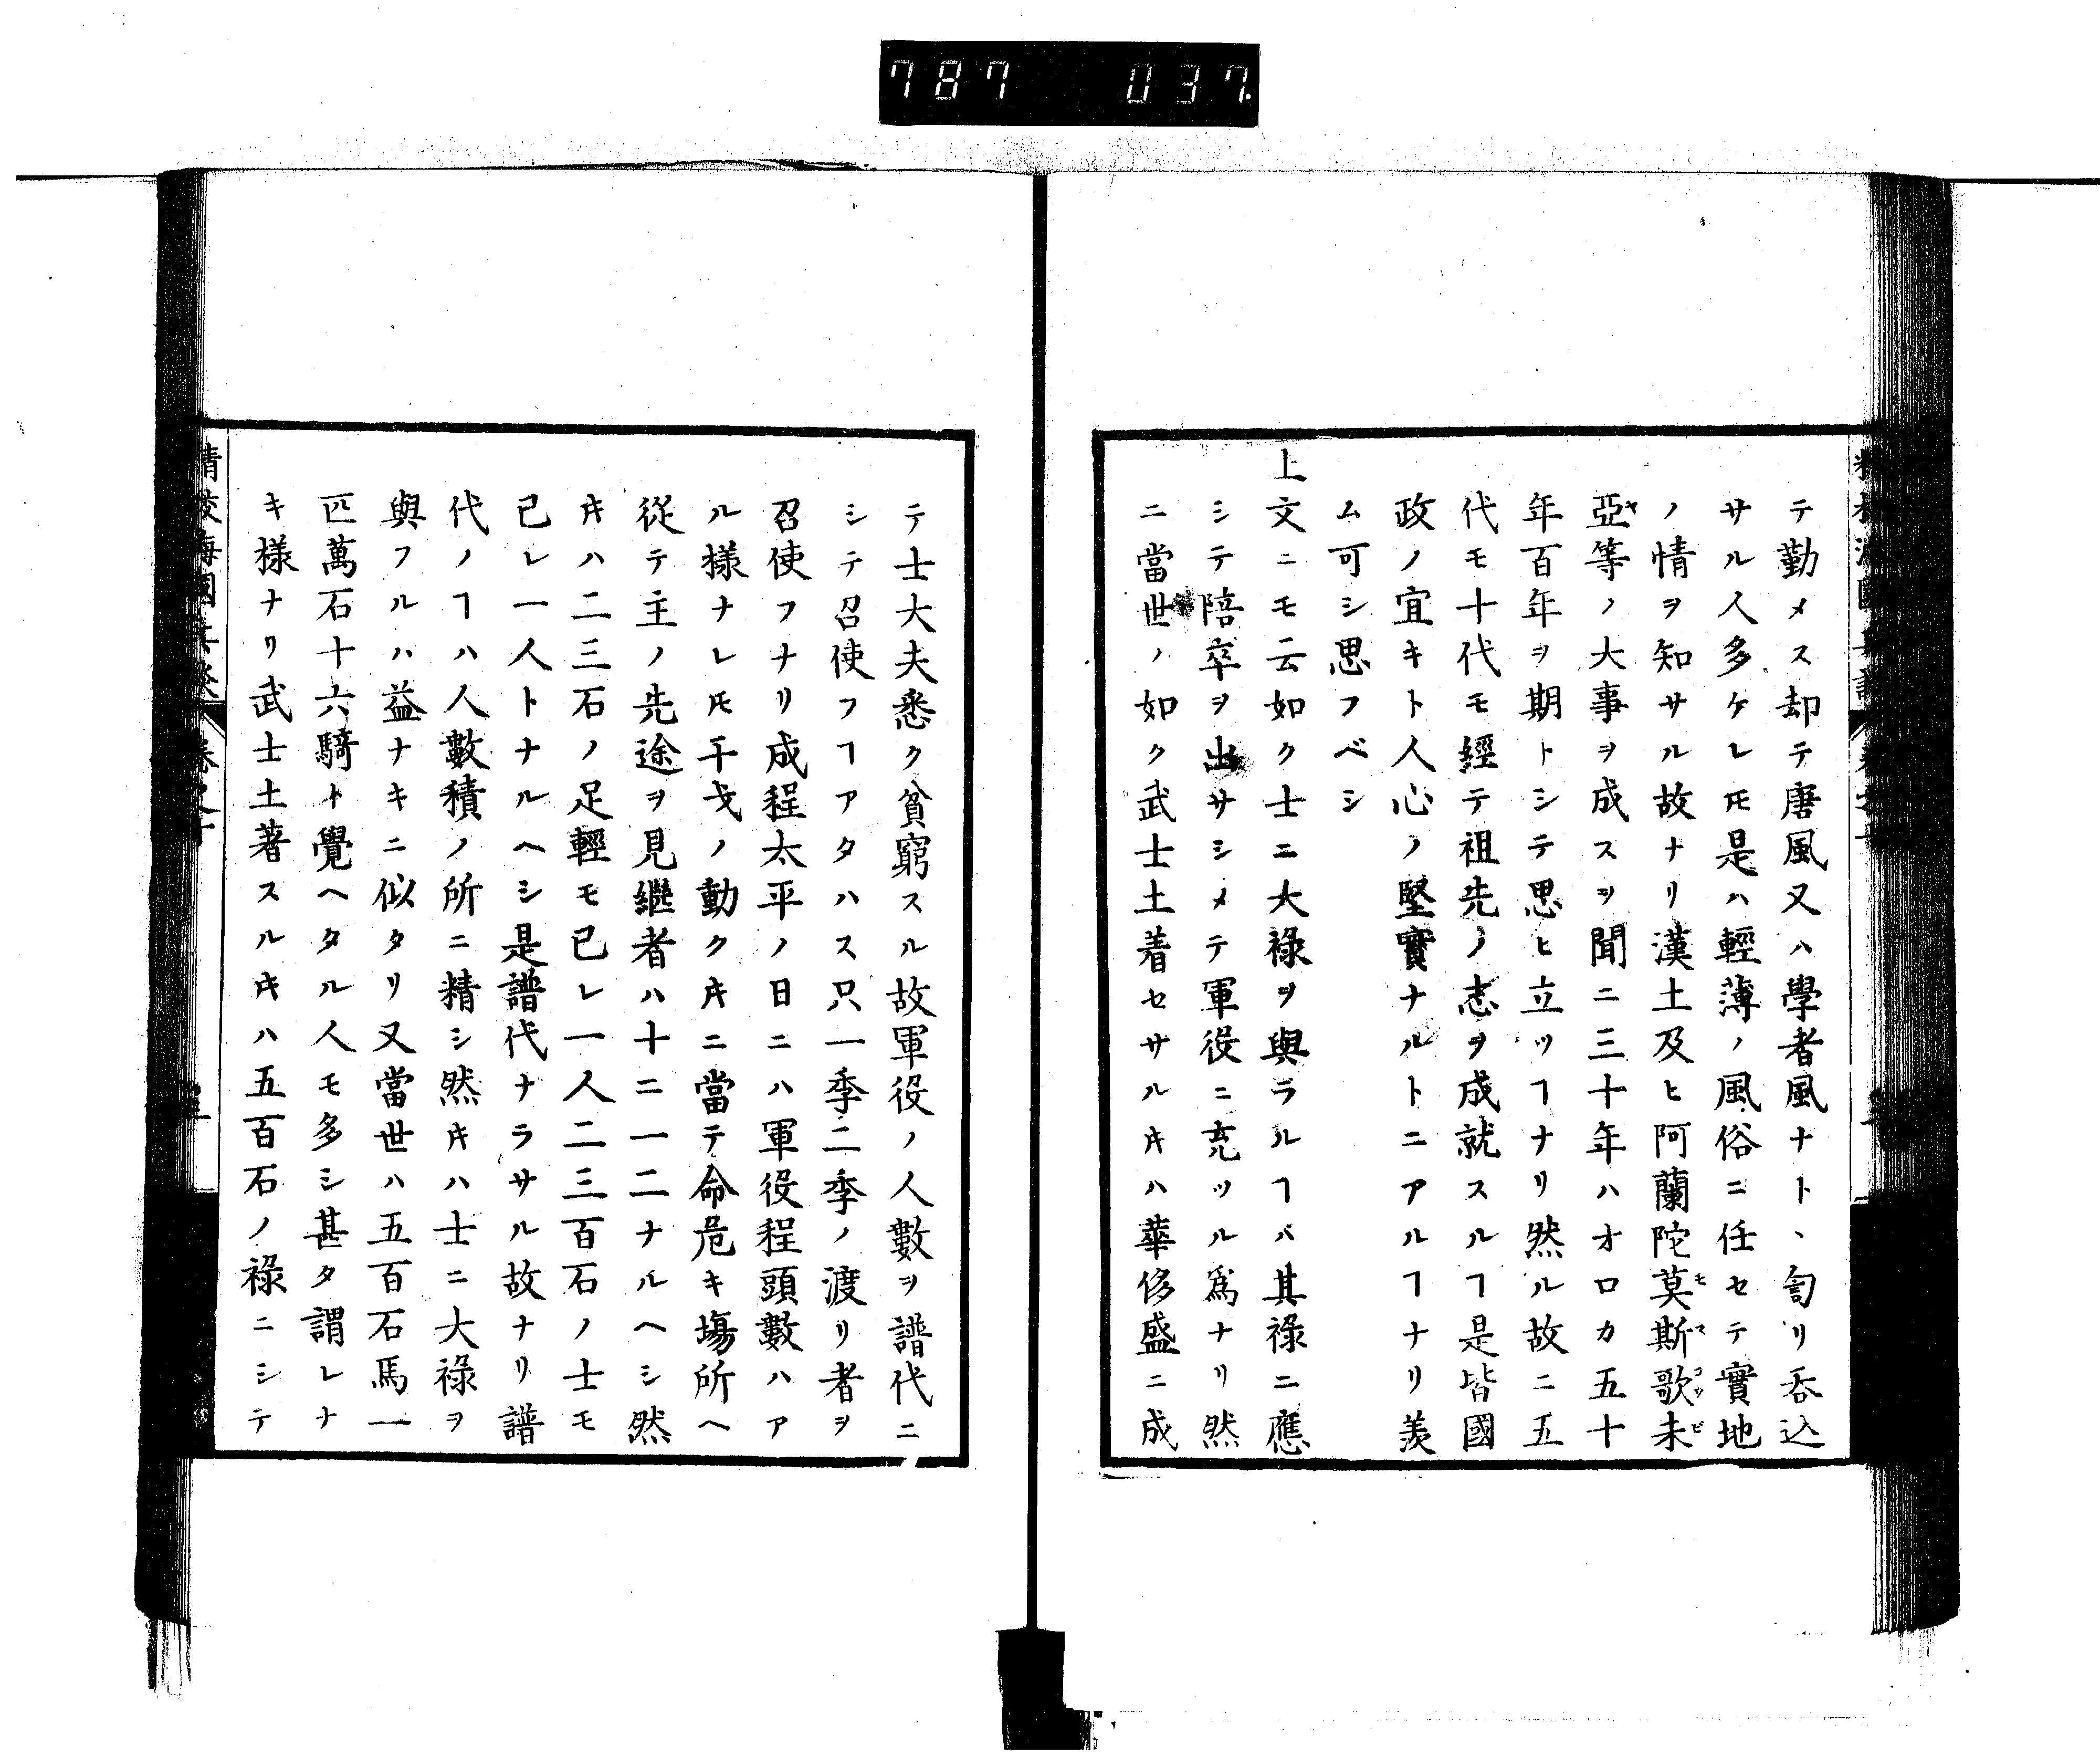 787 037
テ勤メス却テ唐風又ハ學者風ナト、訇リ呑込
サル人多ケレ𪜈是ハ輕薄ノ風俗ニ任セテ實地
ノ情ヲ知サル故ナリ漢土及ヒ阿蘭陀莫斯歌未
亞等ノ大事ヲ成スヲ聞ニ三十年ハオロカ五十
年百年ヲ期トシテ思ヒ立ツヿナリ然ル故ニ五
代モ十代モ經テ祖先ノ志ヲ成就スルヿ是皆國
政ノ宜キト人心ノ堅實ナルトニアルヿナリ羨
ム可シ思フベシ
上文ニモ云如ク士ニ大祿ヲ與ラルヿバ其祿ニ應
シテ陪卒ヲ出サシメテ軍役ニ充ツル爲ナリ然
ニ當世ノ如ク武士土着セサル𪜀ハ華侈盛ニ成
テ士大夫悉ク貧窮スル故軍役ノ人數ヲ譜代ニ
シテ召使フヿアタハス只一季二季ノ渡リ者ヲ
召使フナリ成程太平ノ日ニハ軍役程頭數ハア
ル樣ナレ𪜈干戈ノ動ク𪜀ニ當テ命危キ塲所ヘ
從テ主ノ先途ヲ見繼者ハ十ニ一二ナルヘシ然
𪜀ハ二三石ノ足輕モ已レ一人二三百石ノ士モ
已レ一人トナルヘシ是譜代ナラサル故ナリ譜
代ノヿハ人數積ノ所ニ精シ然𪜀ハ士ニ大祿ヲ
與フルハ益ナキニ似タリ又當世ハ五百石馬一
匹萬石十六騎ト覺ヘタル人モ多シ甚タ謂レナ
キ樣ナリ武士土著スル𪜀ハ五百石ノ祿ニシテ
精校海國兵談 卷之十